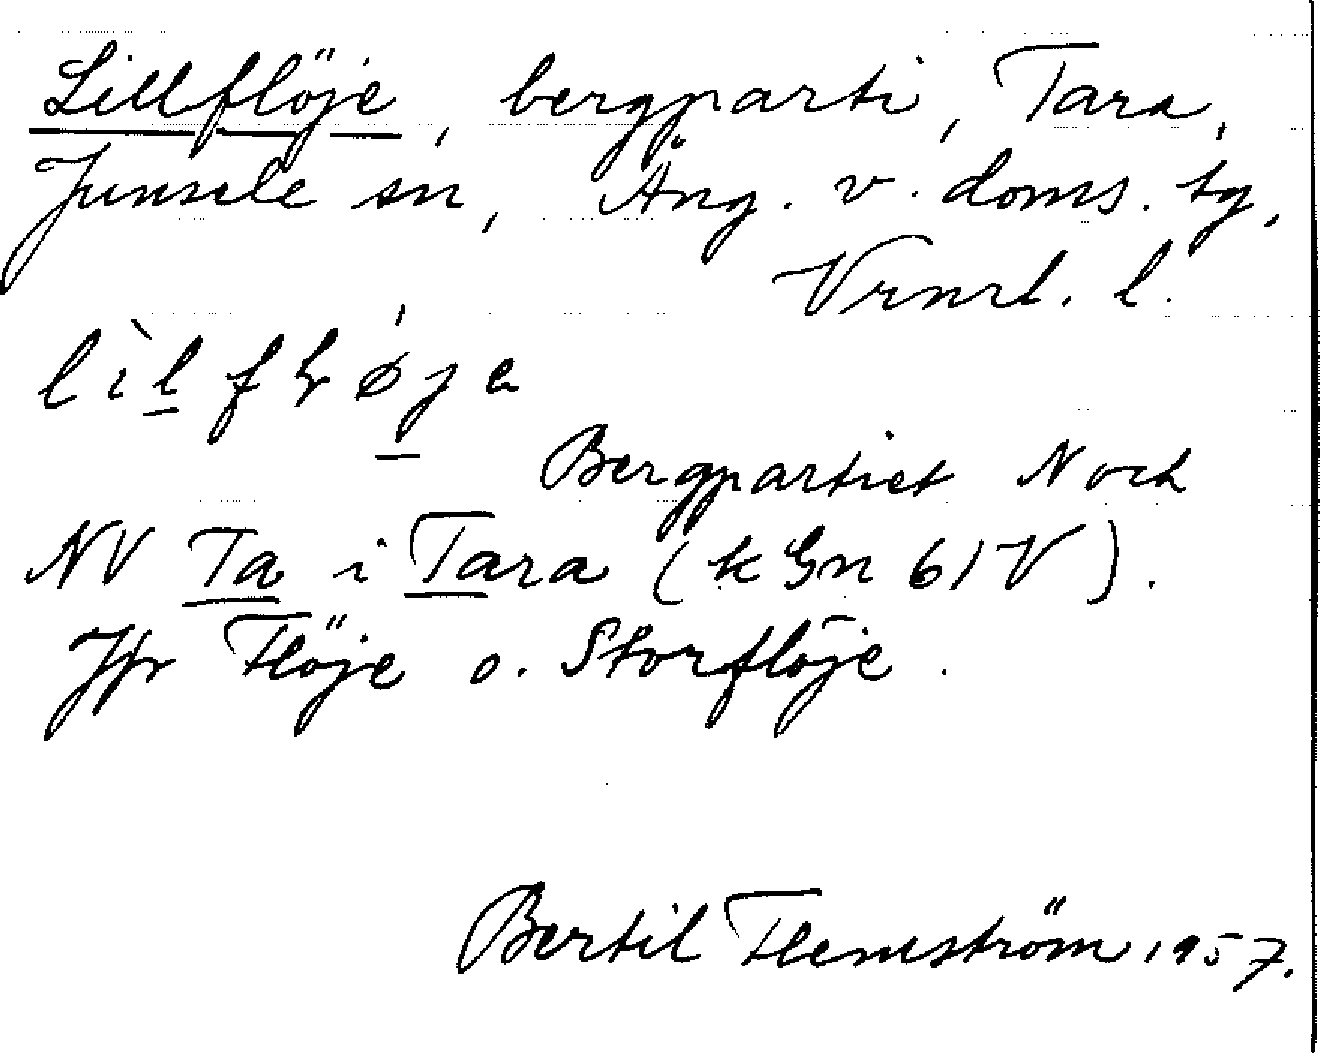 Lillflöje, bergparti, Tara,
Junsele sn, Ång. v. doms. tg,
Vrnrl. l.
Bergpartiet N och
NV Ta i Tara (k Gn 61 V).
Jfr Flöje o. Storflöje.
Bertil Flemström 1957.